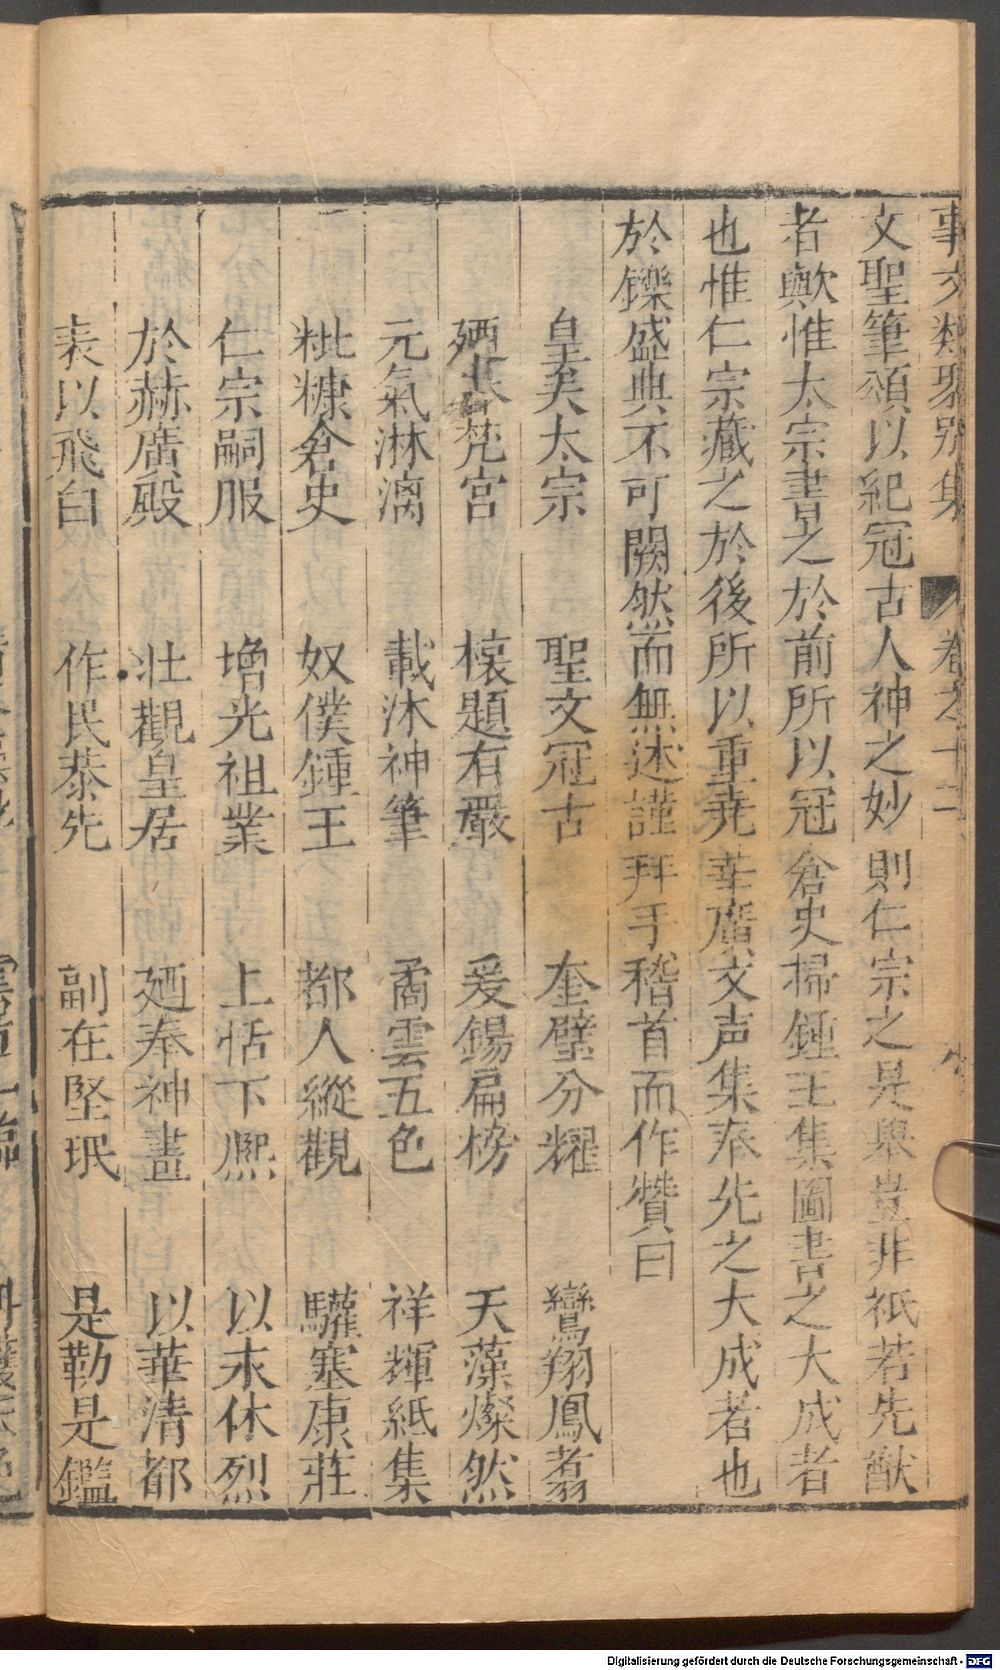 事文類聚别集 卷之十二
文聖筆頌以紀冠古人神之妙則仁宗之是與豈非祇若先猷
者歟惟太宗書之於前所以冠倉史掃鍾王集圖書之大成者
也惟仁宗藏之於後所以重堯華廣文声集奉先之大成者也
於鑠盛典不可闕然而無述謹拜手稽首而作贊曰
皇矣太宗 聖文冠古 奎璧分耀 鸞翔鳳翥
廼 梵宮 榱題有嚴 爰錫扁榜 天藻燦然
元氣淋漓 載沐神筆 矞雲五色 祥輝紙集
粃糠倉史 奴僕鍾王 都人縱觀 驩塞康莊
仁宗嗣服 增光祖業 上恬下熙 以求休烈
於赫廣殿 壯觀皇居 廼奉神畫 以華清都
表以飛白 作民恭先 副在堅珉 是勒是鑑
Digitalisierung gefördert durch die Deutsche Forschungsgemeinschaft - DFG